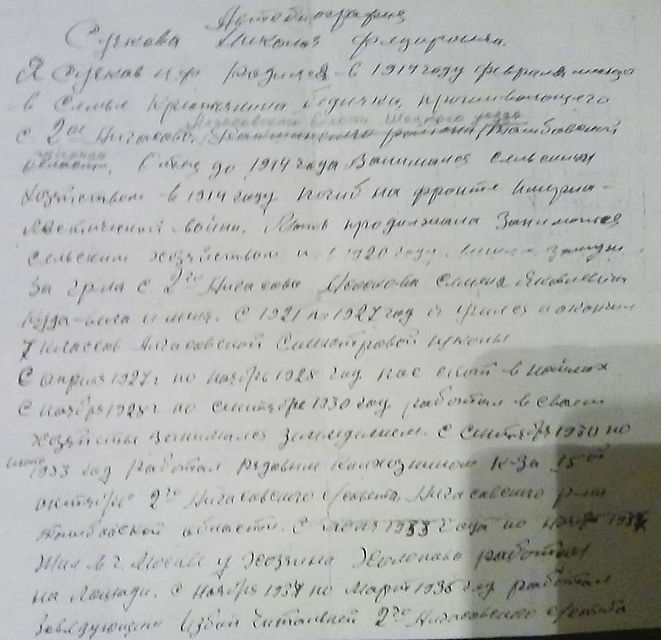 Автобиография
Сучкова Николая Федоровича.
Я Сучков Н.Ф. родился в 1914 году февраля месяца
в семье крестьянина бедняка, проживающего
Алгасовской волости Шацкого уезда
с 2ое Алгасово. района, Тамбовской
губернии
области. Отец до 1914 года занимался сельским
хозяйством в 1914 году погиб на фронте Империа-
листической войны. Мать продолжала заниматься
сельским хозяйством и в 1920 году вышла замуж
за гр-на с 2го Алгасово Семена Яковлевича
куда взела и меня. С 1921 по 1927 год я учился и окончил
7 классов Алгасовской школы
С апреля 1927 г по ноябрь 1928 год пас скот в наймах
С ноября 1928 г по сентябрь 1930 год работал в своем
хозяйстве занимался земледелием. С сентября 1930 по
июнь 1933 год работал рядовым колхозником к-за 15 ой
октябрь 2го Алгасовского с/совета Алгасовского р-на
Тамбовской области. С июня 1933 года по ноябрь 1937
жил в г. Москве у хозяина работал
на лошади. С ноября 1937 по март 1938 год работал
заведующим избой читальней 2го Алгасовского с/совета